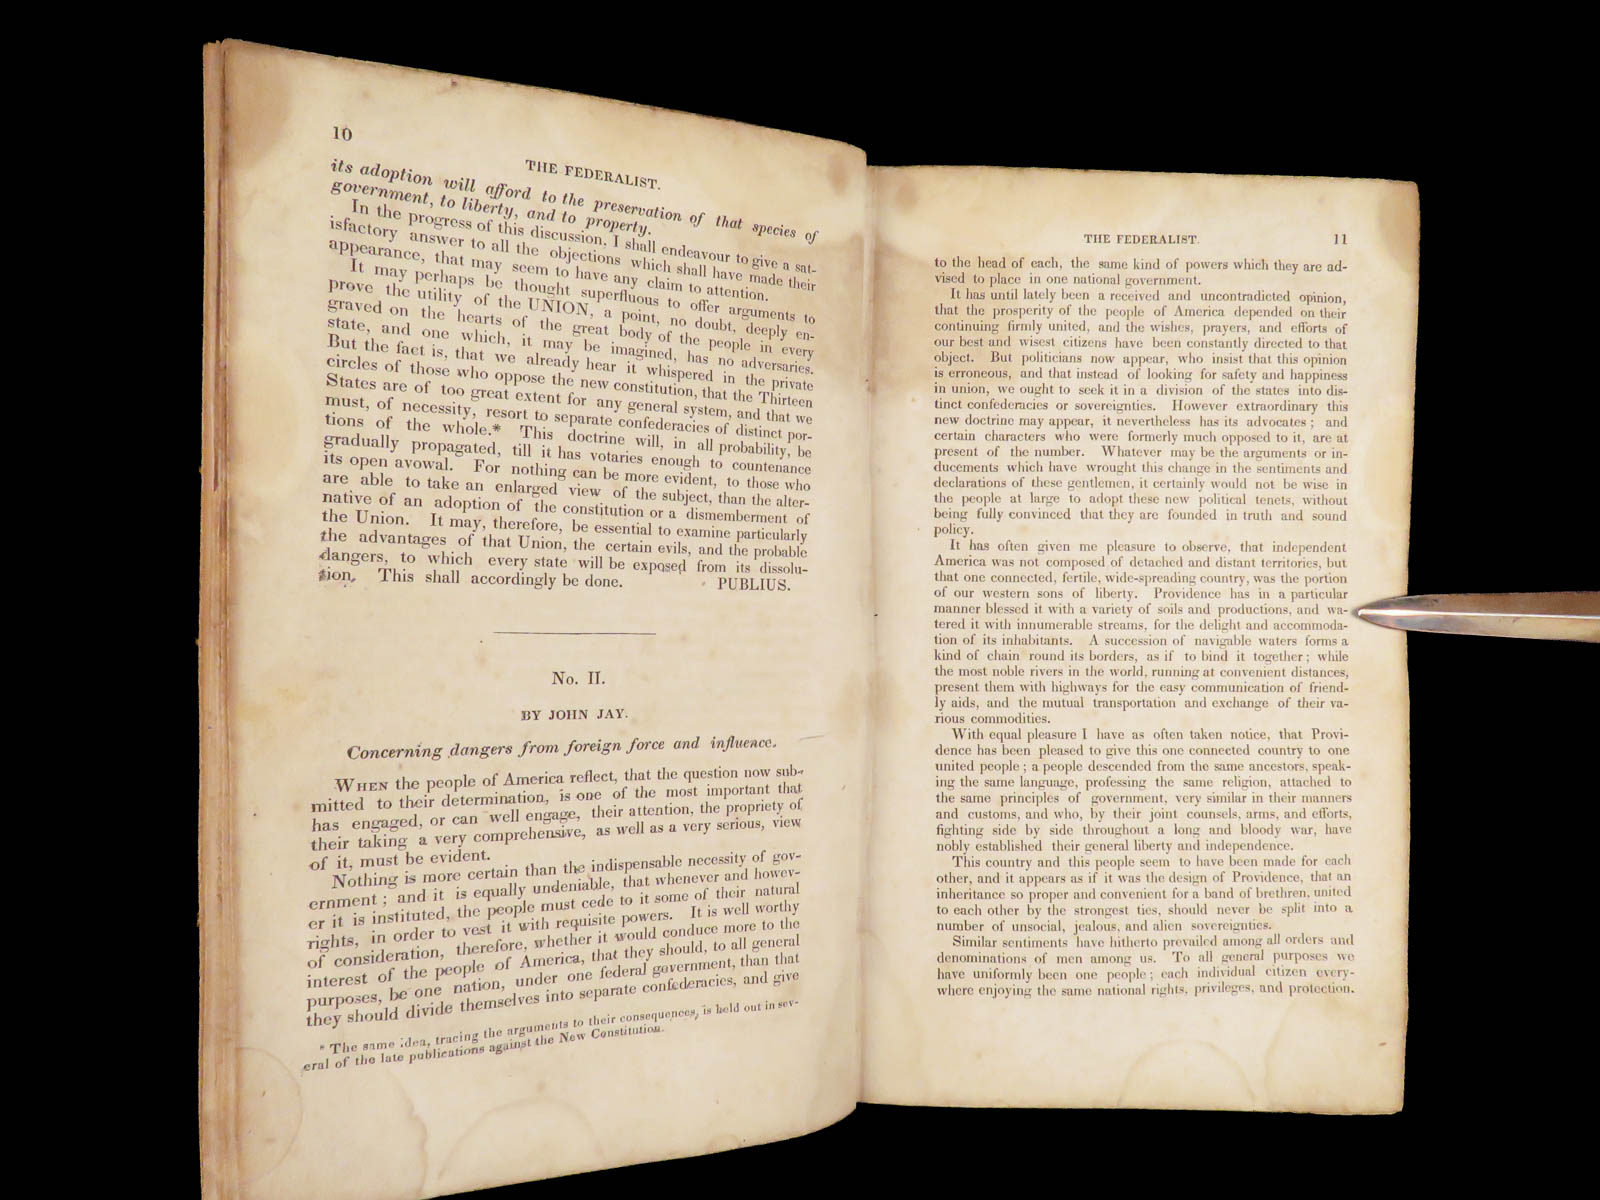 10
THE FEDERALIST.
its adoption will afford to the preservation of that species of
government, to liberty, and to property.
In the progress of this discussion, I shall endeavour to give a sat-
isfactory answer to all the objections which shall have made their
appearance, that may seem to have any claim to attention.
It may perhaps be thought superfluous to offer arguments to
prove the utility of the UNION, a point, no doubt, deeply en-
graved on the hearts of the great body of the people in every
state, and one which, it may be imagined, has no adversaries.
But the fact is, that we already hear it whispered in the private
circles of those who oppose the new constitution, that the Thirteen
States are of too great extent for any general system, and that we
must, of necessity, resort to separate confederacies of distinct por-
tions of the whole.* This doctrine will, in all probability, be
gradually propagated, till it has votaries enough to countenance
its open avowal. For nothing can be more evident, to those who
are able to take an enlarged view of the subject, than the alter-
native of an adoption of the constitution or a dismemberment of
the Union. It may, therefore, be essential to examine particularly
the advantages of that Union, the certain evils, and the probable
dangers, to which every state will be exposed from its dissolu-
tion. This shall accordingly be done. PUBLIUS.
No. II.
BY JOHN JAY.
Concerning dangers from foreign force and influence.
WHEN the people of America reflect, that the question now sub-
mitted to their determination, is one of the most important that
has engaged, or can well engage, their attention, the propriety of
their taking a very comprehensive, as well as a very serious, view
of it, must be evident.
Nothing is more certain than the indispensable necessity of gov-
ernment; and it is equally undeniable, that whenever and howev-
er it is instituted, the people must cede to it some of their natural
rights, in order to vest it with requisite powers. It is well worthy
of consideration, therefore, whether it would conduce more to the
interest of the people of America, that they should, to all general
purposes, be one nation, under one federal government, than that
they should divide themselves into separate confederacies, and give
* The same idea, tracing the arguments to their consequences, is held out in sev-
eral of the late publications against the New Constitution.
THE FEDERALIST. 11
to the head of each, the same kind of powers which they are ad-
vised to place in one national government.
It has until lately been a received and uncontradicted opinion,
that the prosperity of the people of America depended on their
continuing firmly united, and the wishes, prayers, and efforts of
our best and wisest citizens have been constantly directed to that
object. But politicians now appear, who insist that this opinion
is erroneous, and that instead of looking for safety and happiness
in union, we ought to seek it in a division of the states into dis-
tinct confederacies or sovereignties. However extraordinary this
new doctrine may appear, it nevertheless has its advocates; and
certain characters who were formerly much opposed to it, are at
present of the number. Whatever may be the arguments or in-
ducements which have wrought this change in the sentiments and
declarations of these gentlemen, it certainly would not be wise in
the people at large to adopt these new political tenets, without
being fully convinced that they are founded in truth and sound
policy.
It has often given me pleasure to observe, that independent
America was not composed of detached and distant territories, but
that one connected, fertile, wide-spreading country, was the portion
of our western sons of liberty. Providence has in a particular
manner blessed it with a variety of soils and productions, and wa-
tered it with innumerable streams, for the delight and accommoda-
tion of its inhabitants. A succession of navigable waters forms a
kind of chain round its borders, as if to bind it together; while
the most noble rivers in the world, running at convenient distances,
present them with highways for the easy communication of friend-
ly aids, and the mutual transportation and exchange of their va-
rious commodities.
With equal pleasure I have as often taken notice, that Provi-
dence has been pleased to give this one connected country to one
united people; a people descended from the same ancestors, speak-
ing the same language, professing the same religion, attached to
the same principles of government, very similar in their manners
and customs, and who, by their joint counsels, arms, and efforts,
fighting side by side throughout a long and bloody war, have
nobly established their general liberty and independence.
This country and this people seem to have been made for each
other, and it appears as if it was the design of Providence, that an
inheritance so proper and convenient for a band of brethren, united
to each other by the strongest ties, should never be split into a
number of unsocial, jealous, and alien sovereignties.
Similar sentiments have hitherto prevailed among all orders and
denominations of men among us. To all general purposes we
have uniformly been one people; each individual citizen every-
where enjoying the same national rights, privileges, and protection.